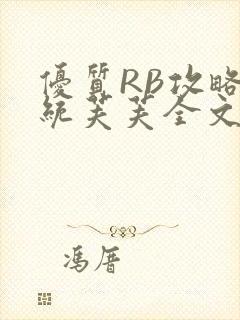 優質RB攻略
統芙芙全文
馮厝